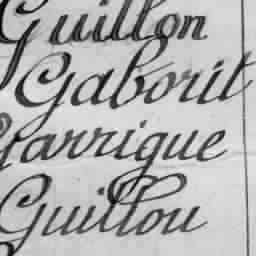 Guillon
Gaborit
Garrigue
Guillou